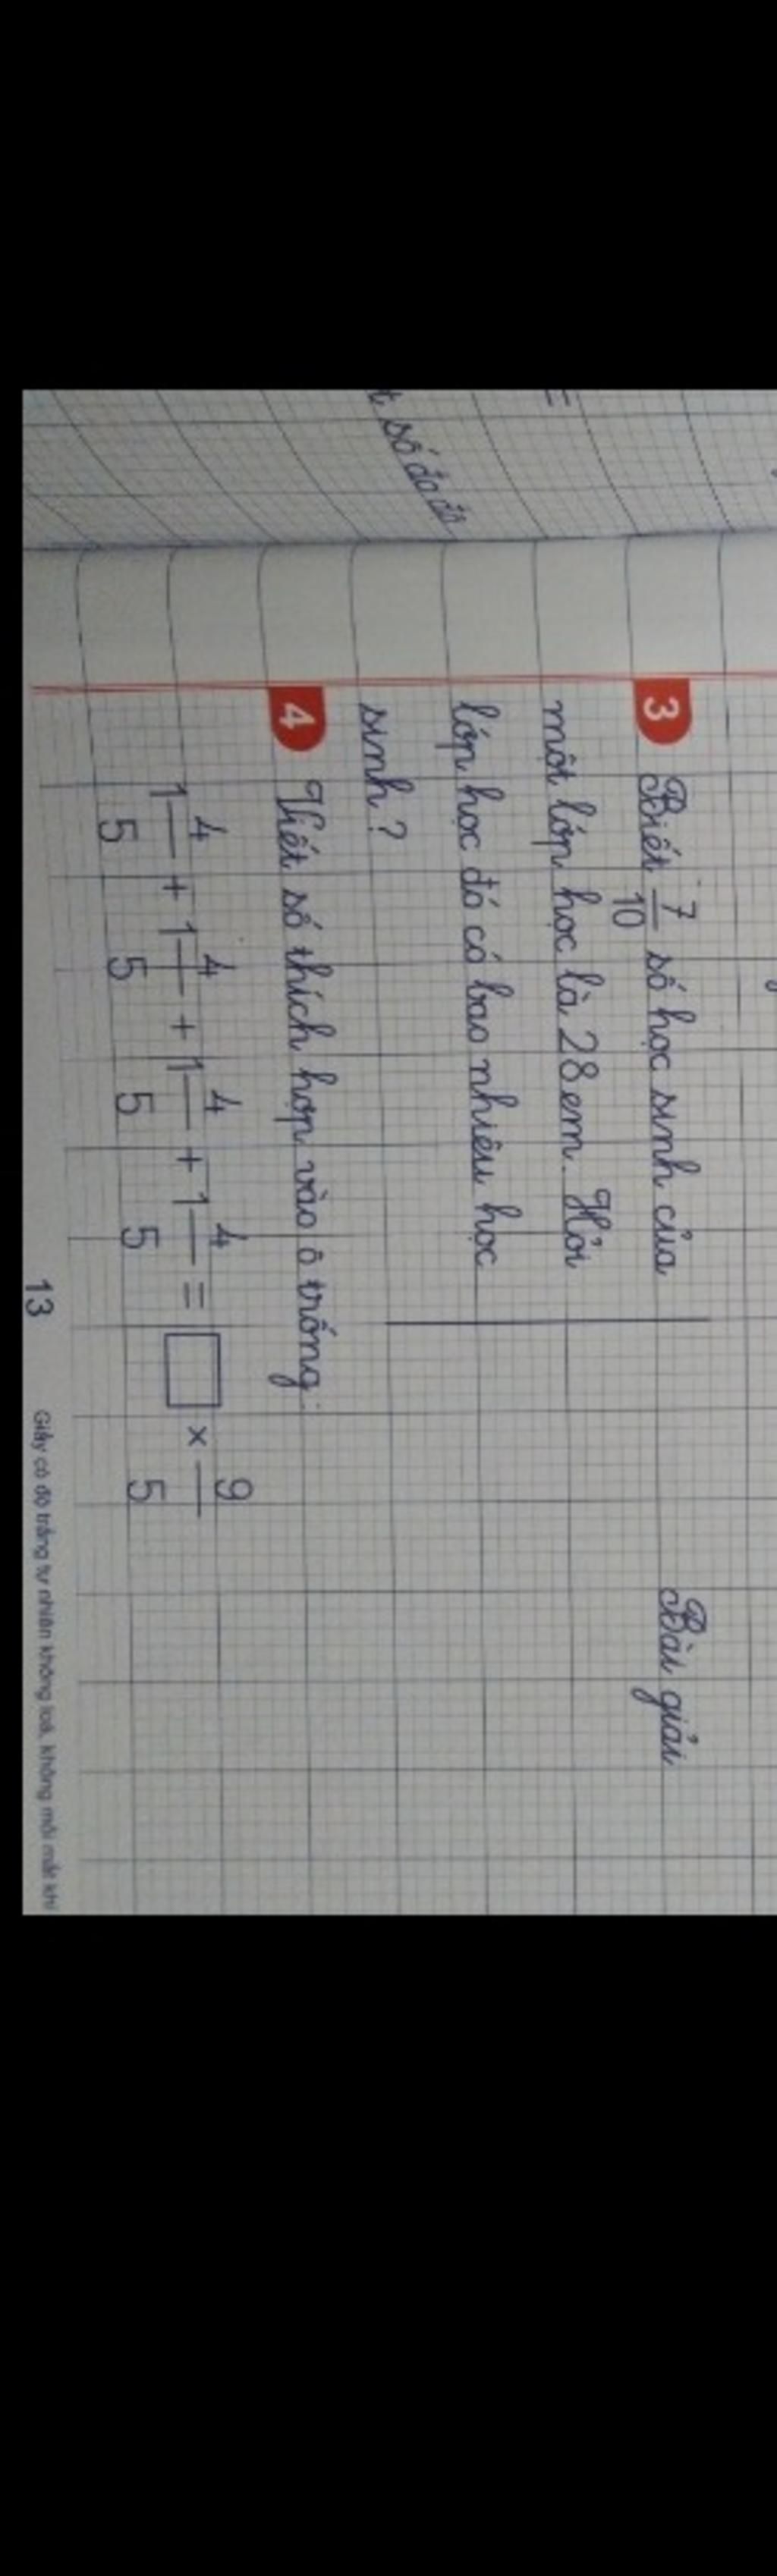 t số đo đó
=
3 Biết 7/10 số học sinh của
một lớp học là 28 em. Hỏi
lớp học đó có bao nhiêu học
sinh?
Bài giải
4 Viết số thích hợp vào ô trống:
1 4/5 + 1 4/5 + 1 4/5 + 1 4/5 = □ × 9/5
13 Giấy có độ trắng tự nhiên không loá, không mỏi mắt khi